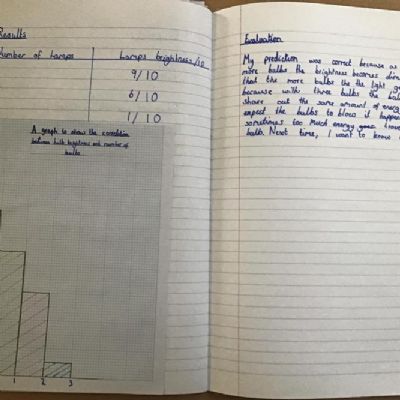 Results
Number of Lamps
Lamps brightness/10
9/10
6/10
1/10
A graph to show the correlation
between bulb brightness and number of
bulbs
1 2 3
Evaluation
My prediction was correct because as
more bulbs the brightness becomes
that the more bulbs the the light
because with three bulbs the
share out the same amount of energy
expect the bulbs to blow it happen
sometimes too much energy goes
bulb. Next time, I want to know